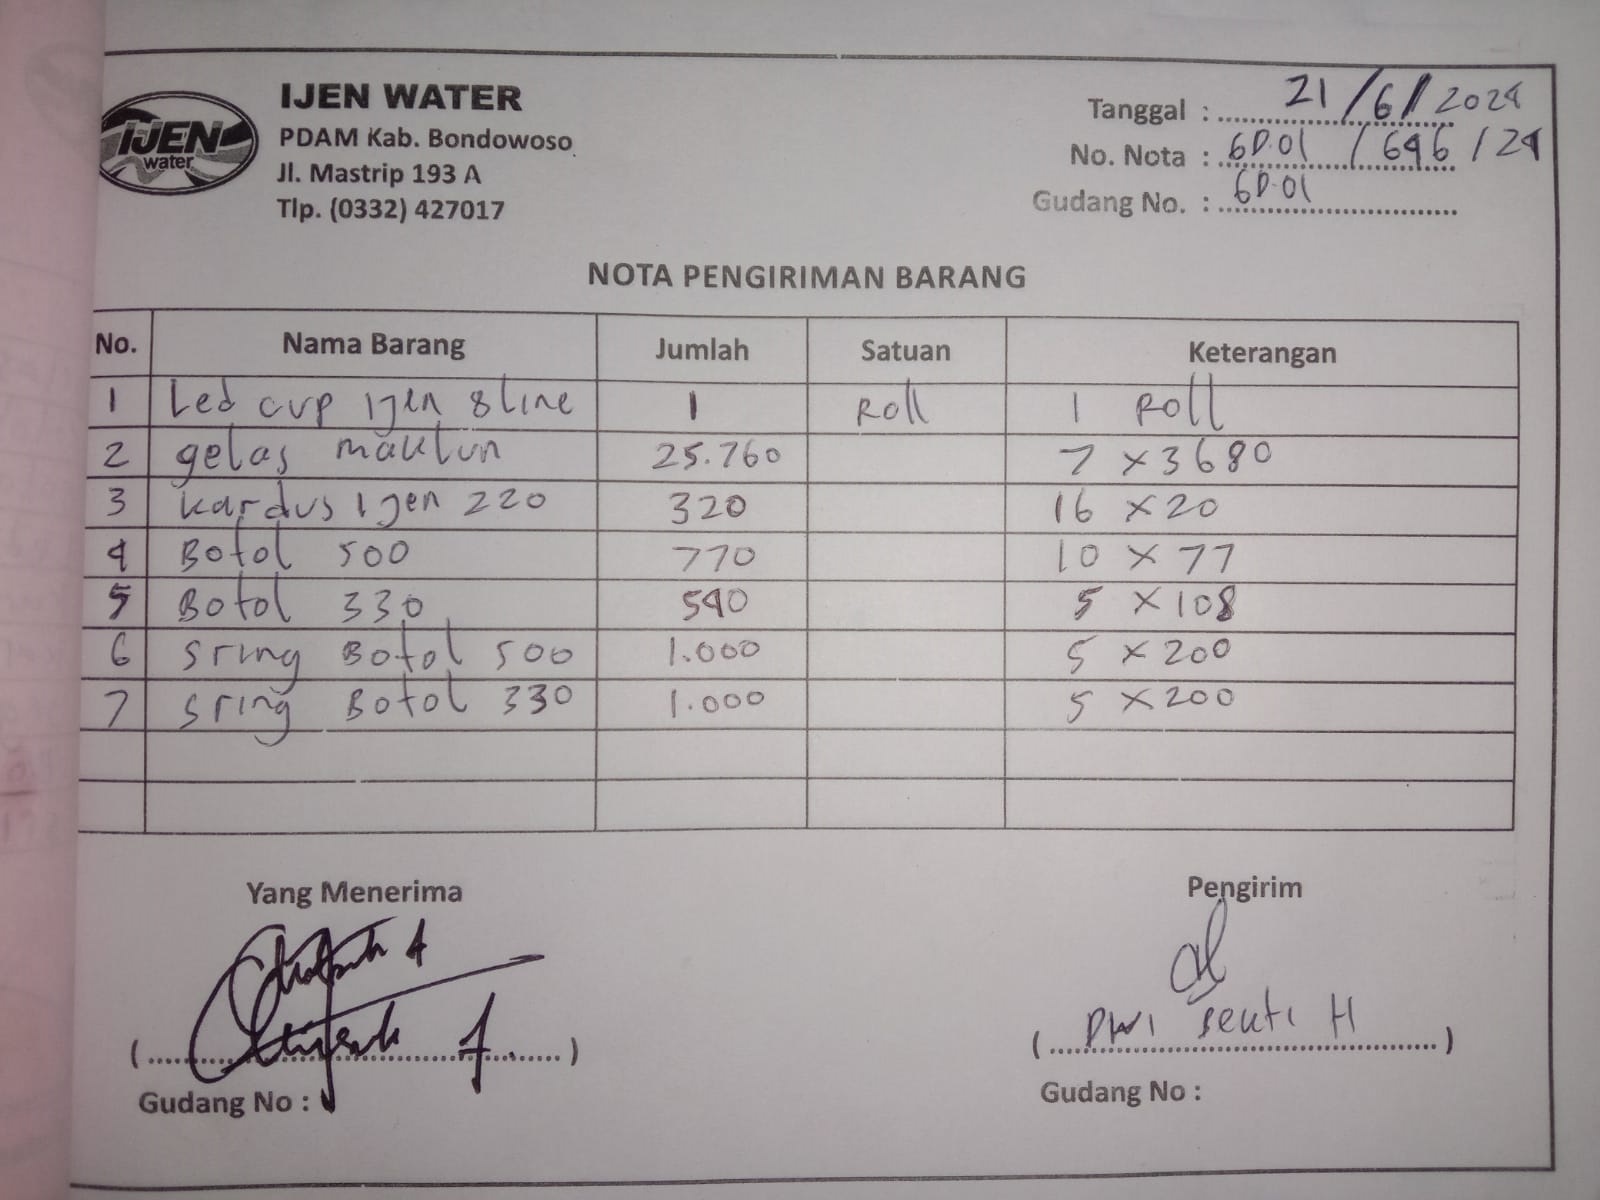 IJEN
water
IJEN WATER
PDAM Kab. Bondowoso
Jl. Mastrip 193 A
Tlp. (0332) 427017
Tanggal : 21/6/2024
No. Nota : GD.01 /646/24
Gudang No. : GD.01
NOTA PENGIRIMAN BARANG
No. Nama Barang Jumlah Satuan Keterangan
1 Led cup Ijen 8 line 1 Roll 1 Roll
2 gelas maklun 25.760 7 x 3680
3 kardus Ijen 220 320 16 x 20
4 Botol 500 770 10 x 77
5 Botol 330 540 5 x 108
6 Sring Botol 500 1.000 5 x 200
7 Sring Botol 330 1.000 5 x 200
Yang Menerima Pengirim
Dwi Bekti H
Gudang No : Gudang No :